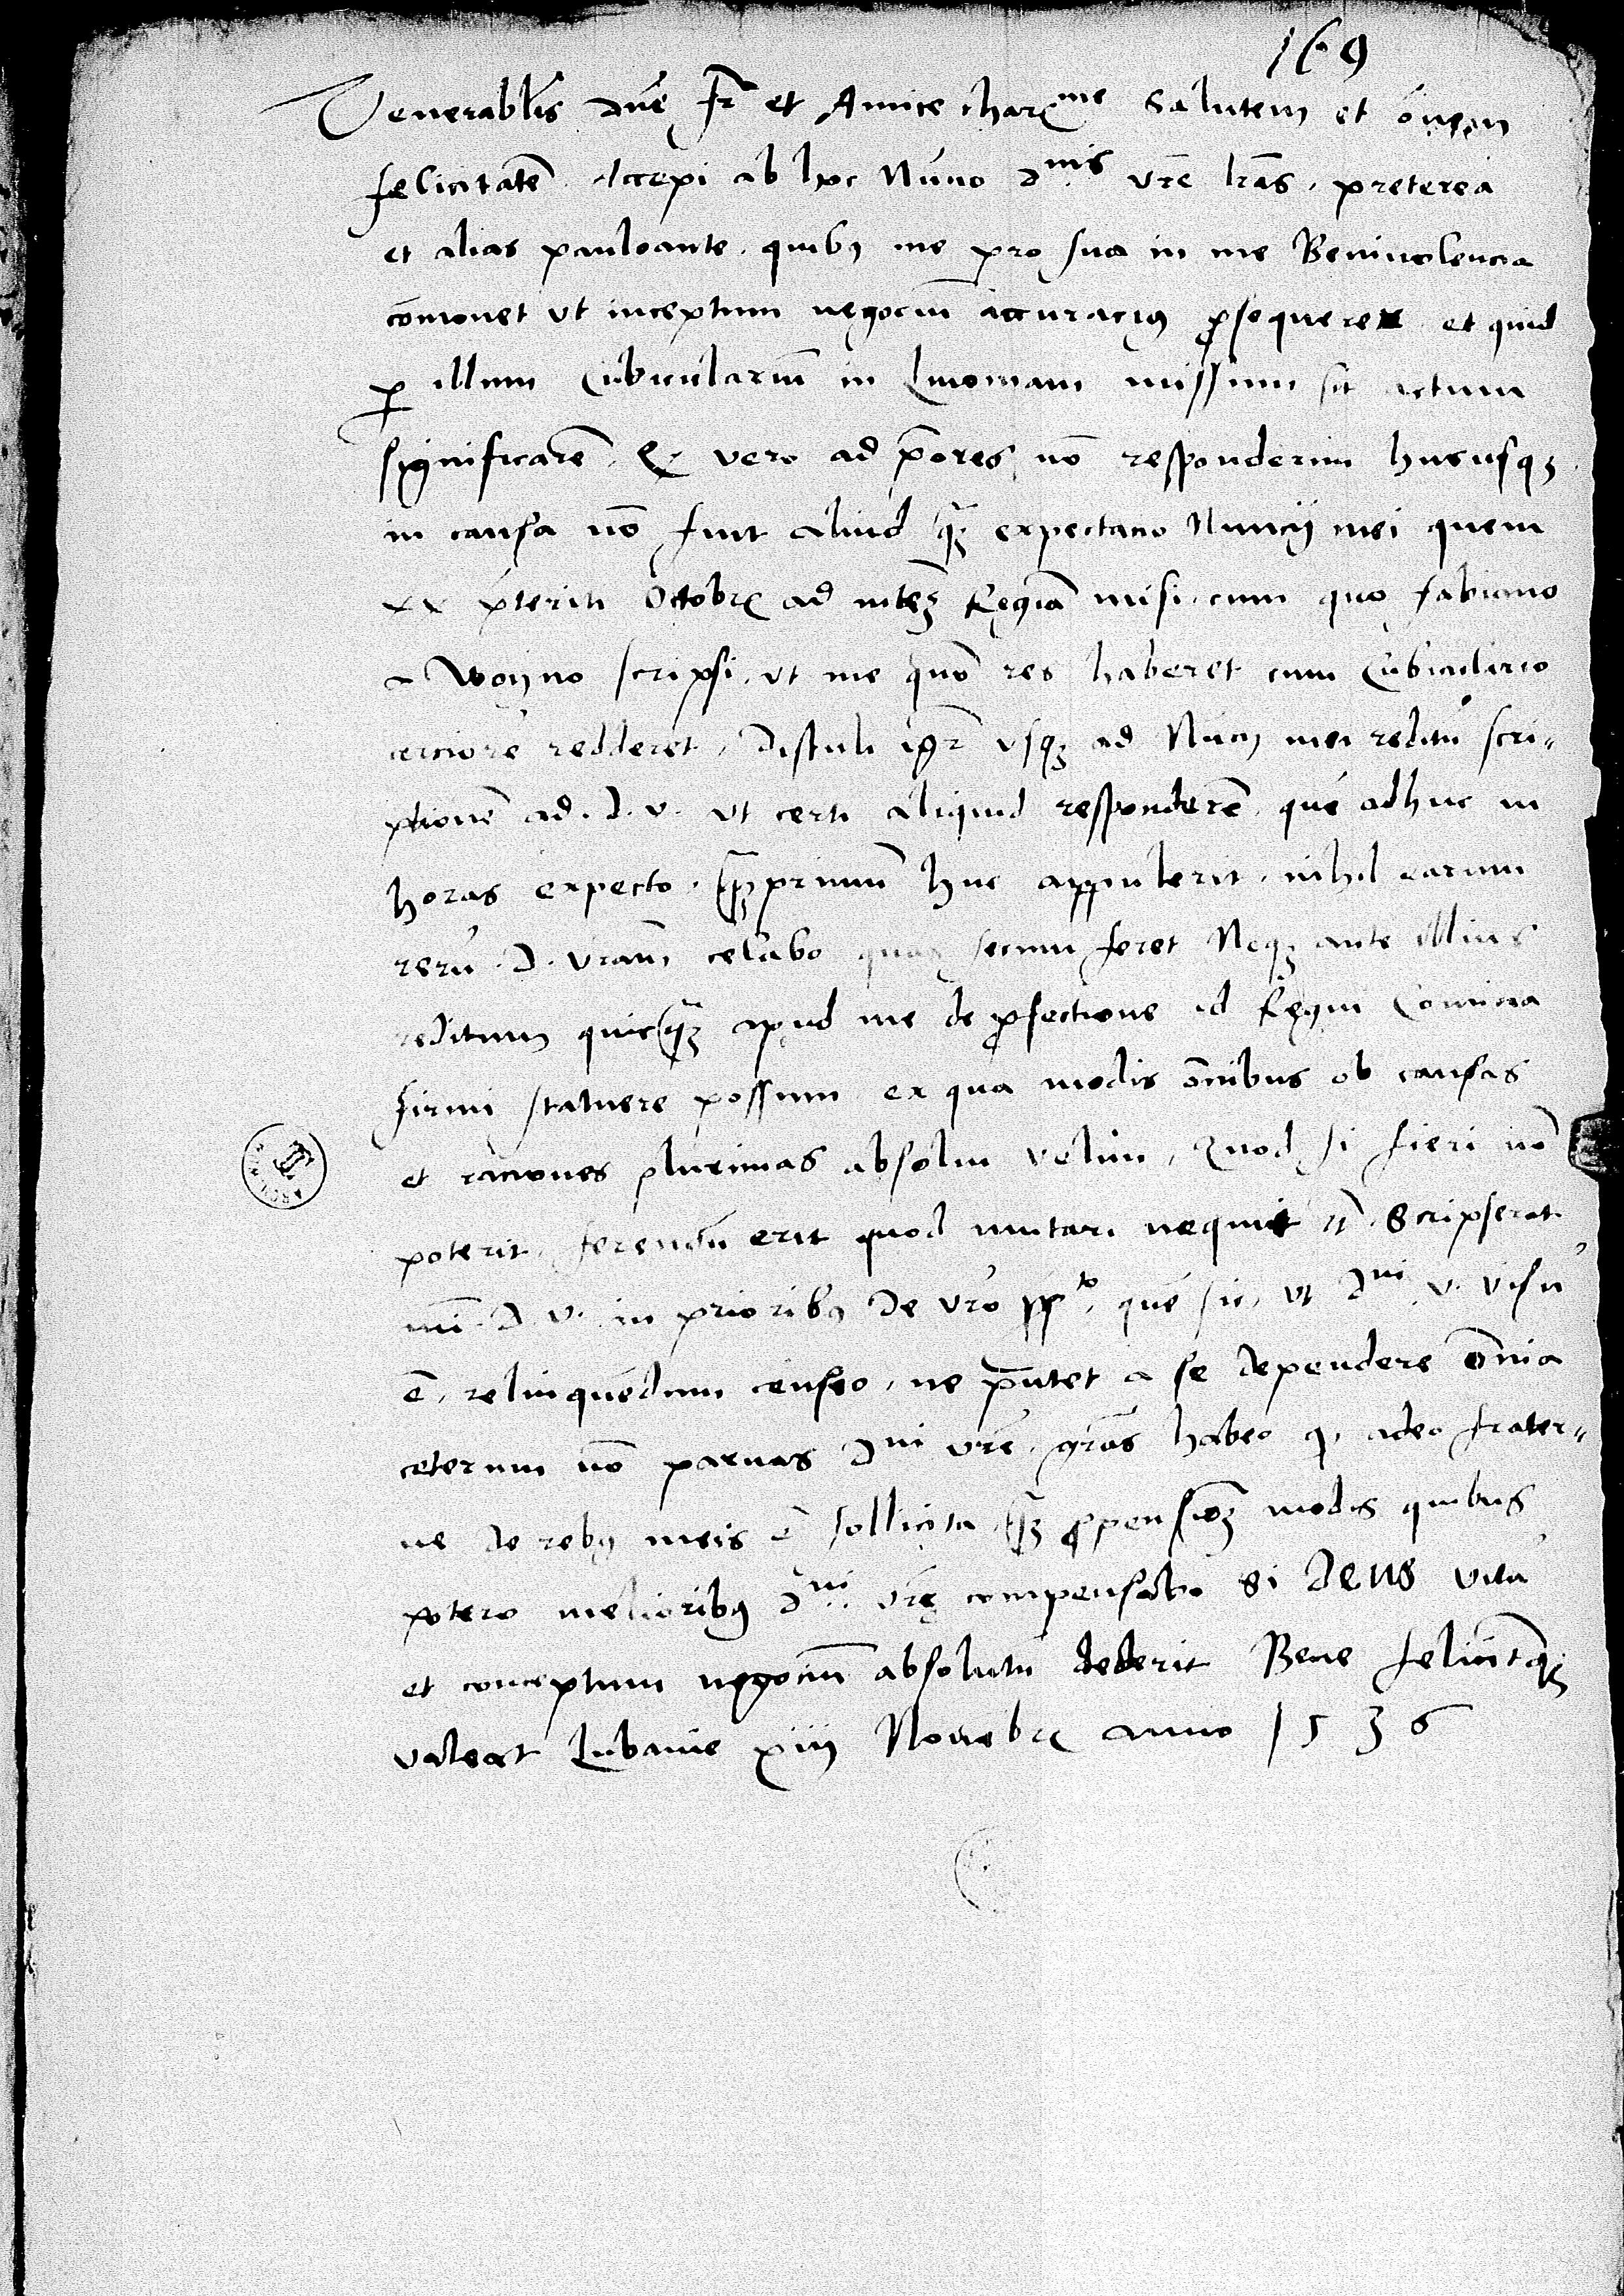 169
Venerabl̄is dn̄e fr̄ et Amice charme Salutem et ōnem
felicitatē. Accepi ab hoc Nūcio dnis vrē lrās, preterea
et alias pauloante, quibus me pro sua in me Beniuolencia
cōmonet vt inceptum negociū accuracius prosequerer et quid
per illum Cubiculariū in Liuoniam missum sit actum
significarē. Q vero ad prōres nō responderim hucusq3
in causa nō fuit aliud q̄3 expectacio Nuncij mei quem
xx preteriti Octobr ad Regiā misi, cum quo fabiano
a woyno scripsi, vt me quō res haberet cum Cubiculario
cerciorē redderet, distuli igr̄ vsq3 ad Nūcij mei reditū scri-
ptionē ad. d. v. vt certi aliquid responderē, quē adhuc in
horas expecto. q̄3primum huc appulerit, nihil earum
rerū. d. vram̄ celabo quas secum feret Neq3 ante illius
reditum quicq̄3 apud me de profectione ad Regni Comicia
firmi statuere possum ex qua modis ōnibus ob causas
et raciones plurimas absolui velim, Quod si fieri nō
poterit, ferendū erit quod mutari nequit Scripserat
mi. d. v. in prioribus de vrō ppto, quē sic, vt dni v. visū
ē, relinquēdum censeo, ne putet a se dependere ōnia
ceterum nō paruas dni vrē, grās habeo q, adeo frater-
ne de rebus meis ē sollicita, q̄3 propensionē3 modis quibus
potero melioribus dni. vrē compensabo si deus vitā
et conceptum negociū absolutū dederit Bene felicitq̄3
valeat Lubauie xiij Nouēbr anno 1536